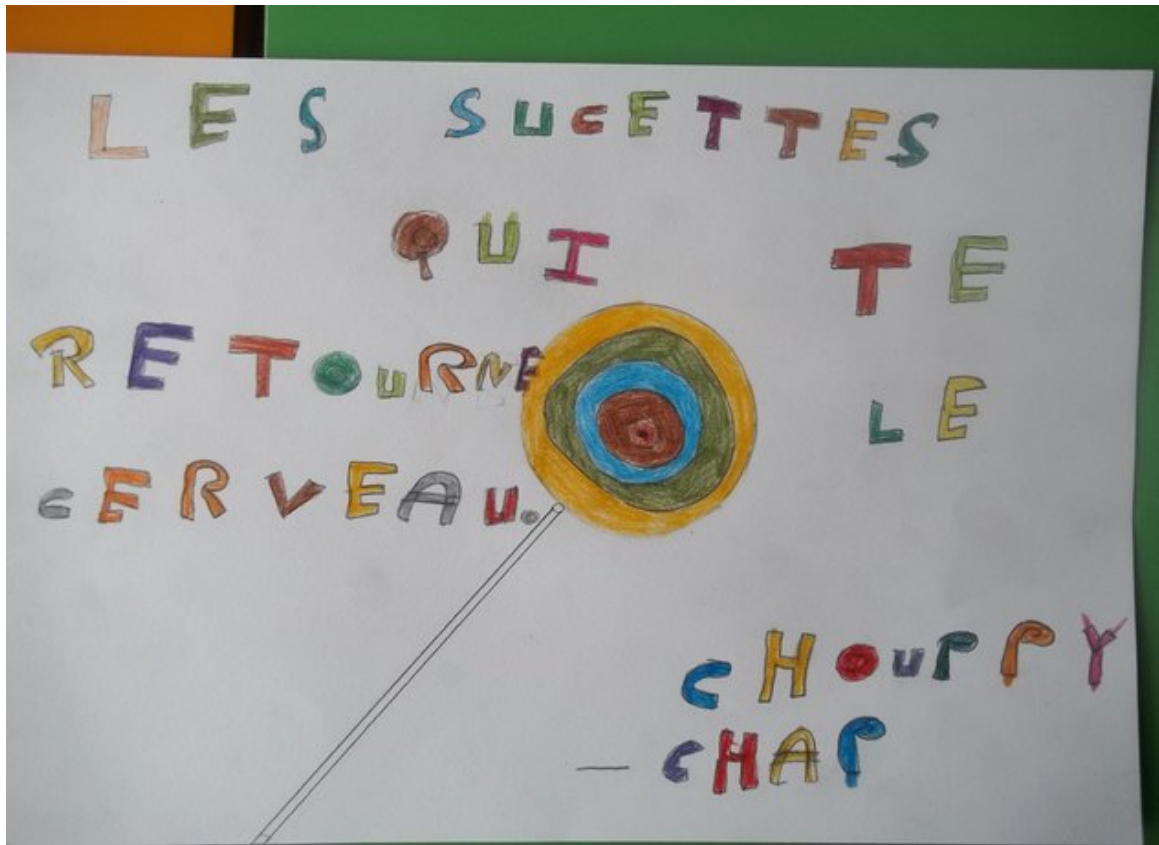 LES SUCETTES
QUI TE
RETOURNE LE
CERVEAU.
CHOUPPY
— CHAP